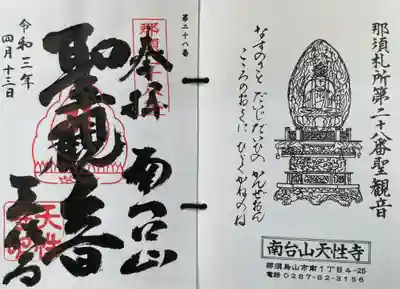 那須札所第二十八番聖観音
なすのさと だいじだいひの かんぜおん
こころのおくに ひびくかねのね
南台山天性寺
那須烏山市南1丁目4-25
電話0287-82-3156
第二十八番
奉拝 南台山
聖観音
天性寺
令和三年
四月十三日